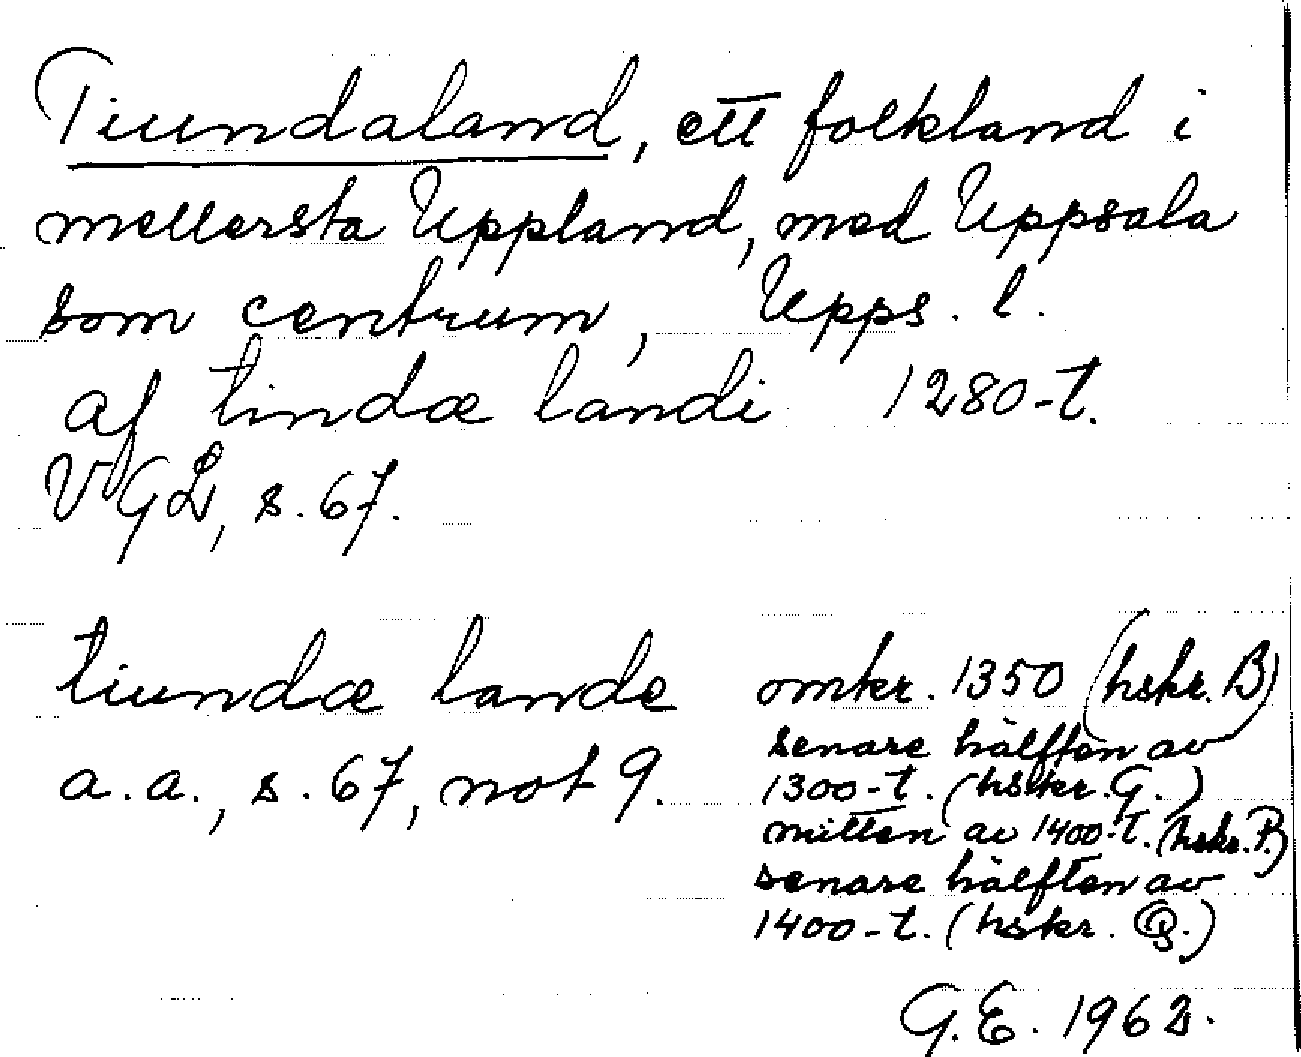 Tiundaland, ett folkland i
mellersta Uppland, med Uppsala
som centrum, Upps. l.
af tindæ landi 1280-t.
VGL, s. 67.
tiundæ lande omkr. 1350 (hskr. B)
senare hälften av
a.a., s. 67, not 9. 1300-t. (hskr. G.)
mitten av 1400-t. (hskr. P.)
senare hälften av
1400-t. (hskr. Q.)
G.E. 1962.